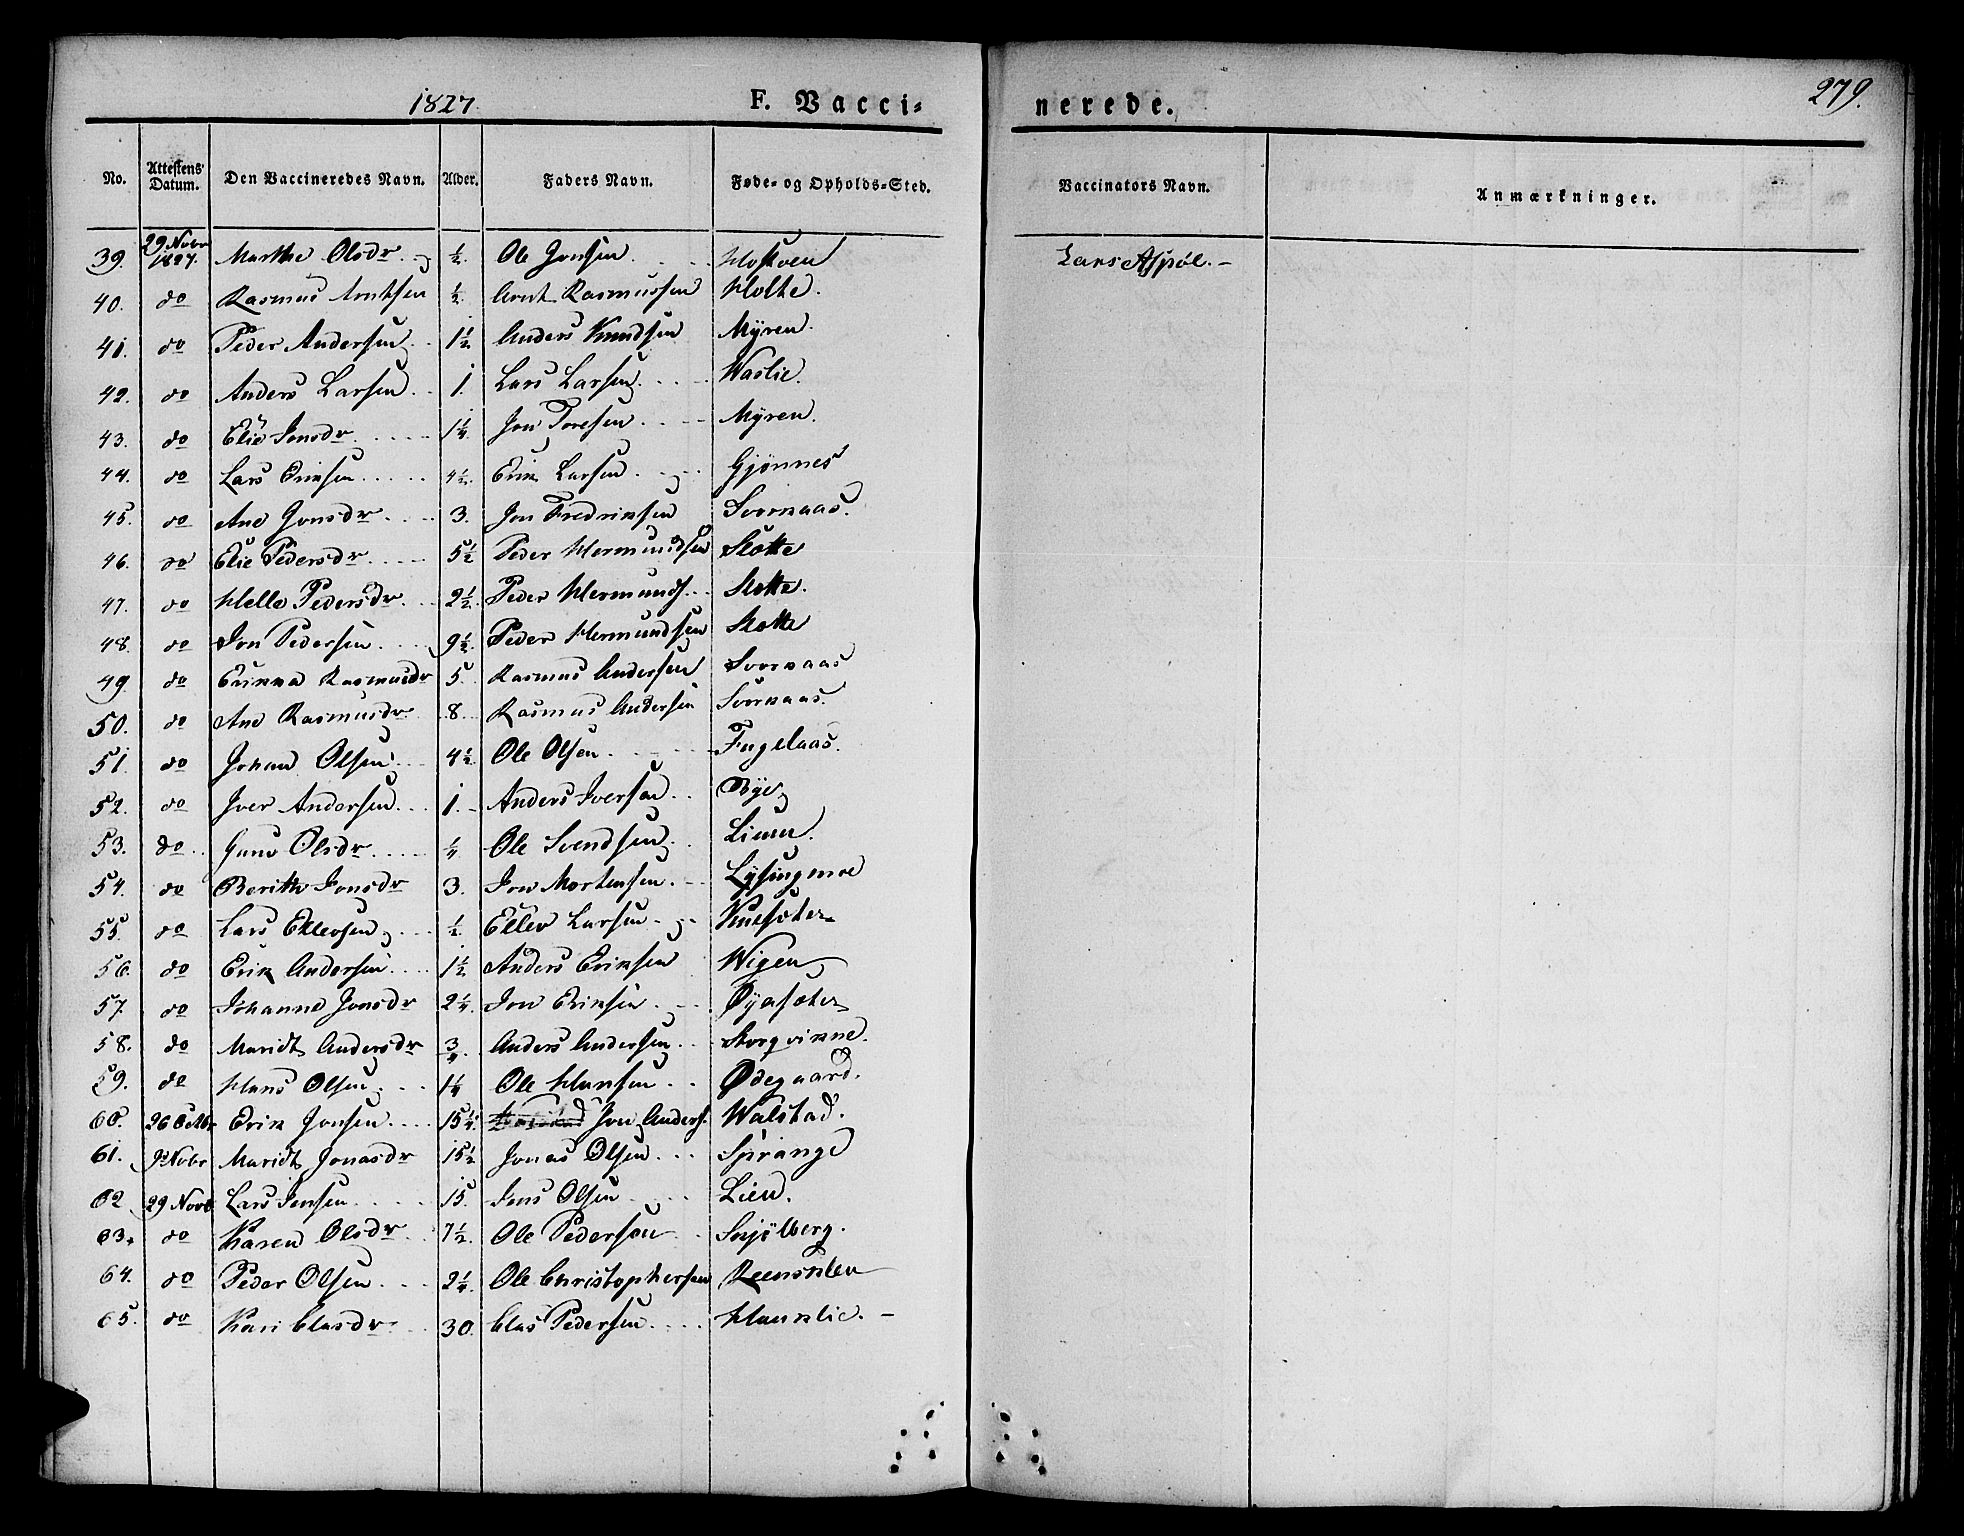 1827. F. Vacci-nerede. 279.
No. Attestens Datum. Den Vaccineredes Navn. Alder. Faders Navn. Føde- og Opholds-Sted. Vaccinators Navn. Anmærkninger.
39. 29 Novbr 1827. Marthe Olsdr ½. Ole Jonsen. Moskven Lars Aspøe. -
40. do Rasmus Arntsen ½. Arnt Rasmussen Holte.
41. do Peder Andersen 1½ Anders Knudsen Myren.
42. do Anders Larsen 1. Lars Larsen Waslie.
43. do Elie Jonsdr 1¼. Jon Toresen Myren.
44. do Lars Eriksen 4½. Erik Larsen Gjønnes
45. do Ane Jonsdr 3. Jon Fredriksen Svornaas.
46. do Elie Pedersdr 5½ Peder Hermundsen Slotte
47. do Helle Pedersdr 2½. Peder Hermunds. Slotte.
48. do Jon Pedersen 9½. Peder Hermundsen Slotte
49. do Erikka Rasmusdr 5. Rasmus Andersen Svornaas
50. do Ane Rasmusdr 8. Rasmus Andersen Svornaas.
51. do Johan Olsen 4½. Ole Olsen Fugelaas.
52. do Iver Andersen 1. Anders Iversen Bye
53. do Guno Olsdr ¼ Ole Svendsen Liumm.
54. do Berithe Jonsdr 3. Jon Mortensen Lysingmoe
55. do Lars Ellevsen ½. Ellev Larsen Knesæter
56. do Erik Andersen 1½ Anders Eriksen Wigen
57. do Johanne Jonsdr 2¼. Jon Eriksen Øyasæter
58. do Maridt Andersdr ¾. Anders Andersen Storqvinne.
59. do Hans Olsen 1¼ Ole Hansen Ødegaard.
60. 26 Octbr Erik Jonsen 15¼. Jon Anders. Walstad.
61. 9 Novbr Maridt Jonasdr 15½. Jonas Olsen Sprange
62 29 Novb Lars Jensen 15. Jens Olsen Lien.
63. do Karen Olsdr 7½. Ole Pedersen Snjølberg.
64. do Peder Olsen 2¼. Ole Christophersen Reensklev
65. do Kari Clasdr 30. Clas Pedersen Haunslie. -